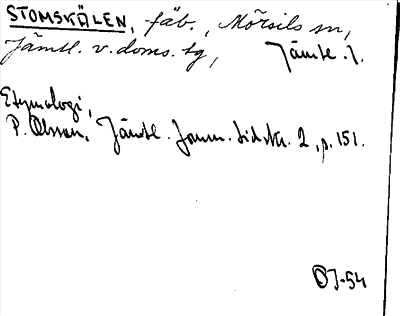 STOMSKÄLEN, fäb., Mörsils sn,
Jämtl. v. doms. tg, Jämtl. l.
Etymologi,
P. Olsson, Jämtl. forn. tidskr. 2, p. 151.
OJ-54